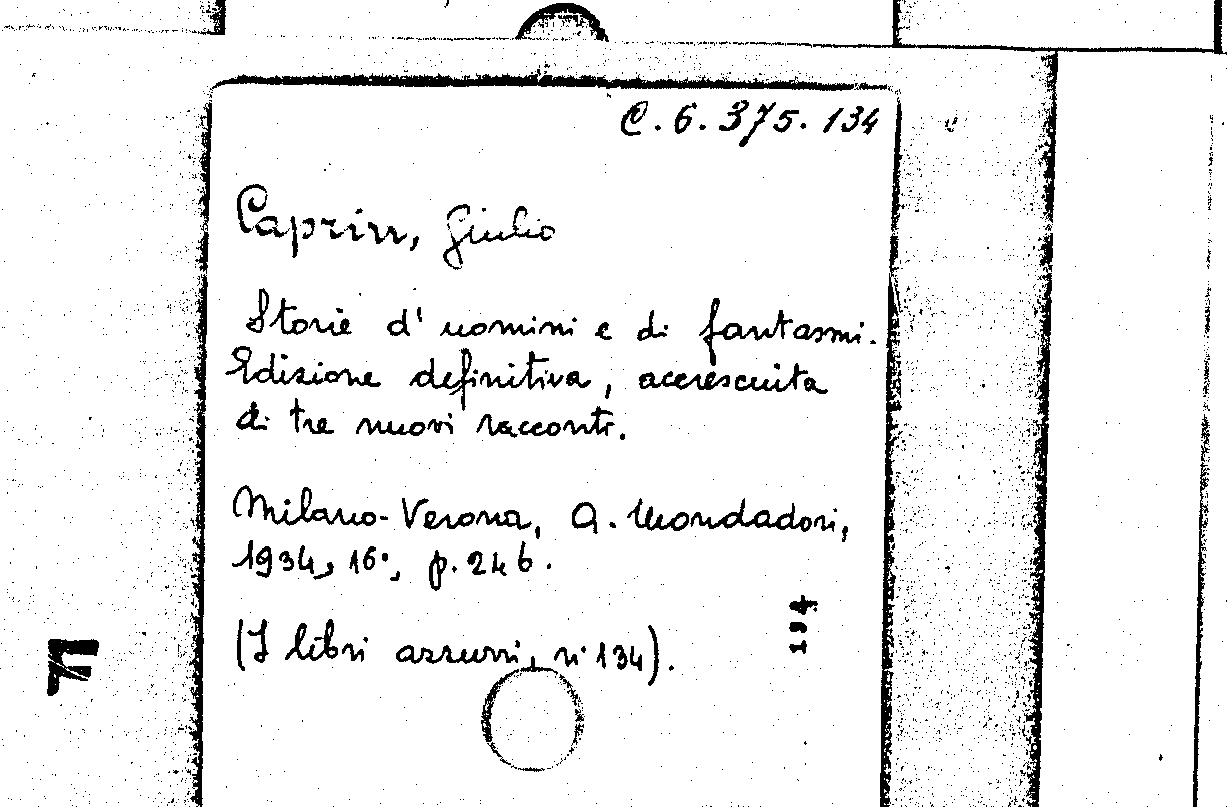 C. 6. 375. 134
Caprin, Giulio
Storie d'uomini e di fantasmi.
Edizione definitiva, accresciuta
di tre nuovi racconti.
Milano-Verona, A. Mondadori,
1934, 16°, p. 246.
134
(I libri azzurri, n° 134).